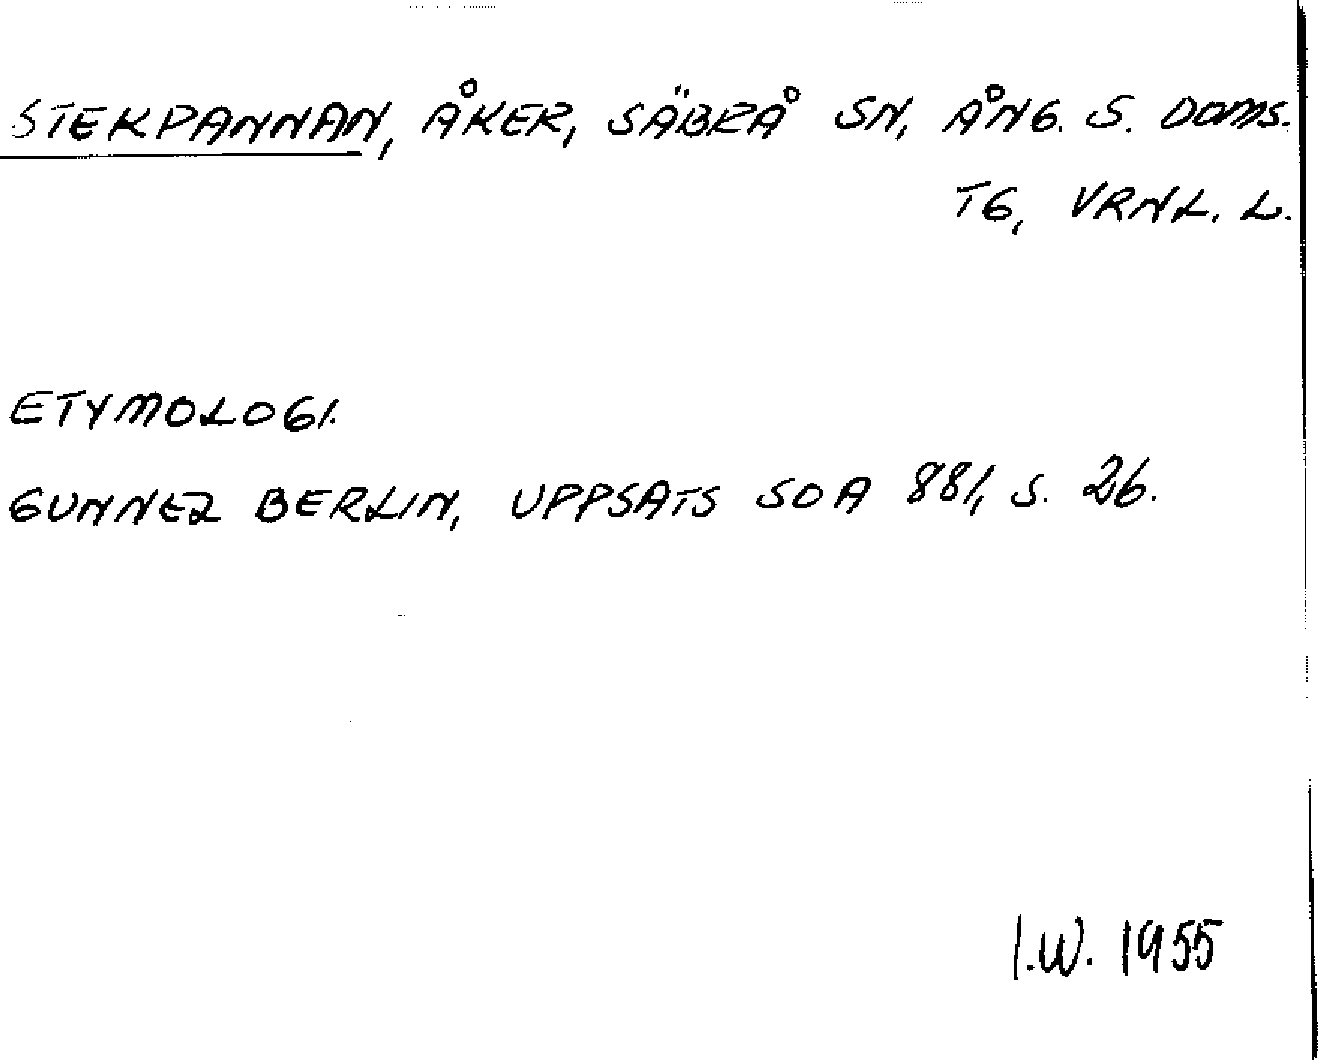 STEKPANNAN, ÅKER, SÄBRÅ SN, ÅNG. S. DOMS.
TG, VRNL. L.
ETYMOLOGI.
GUNNEL BERLIN, UPPSATS SOA 881, S. 26.
I.W. 1955